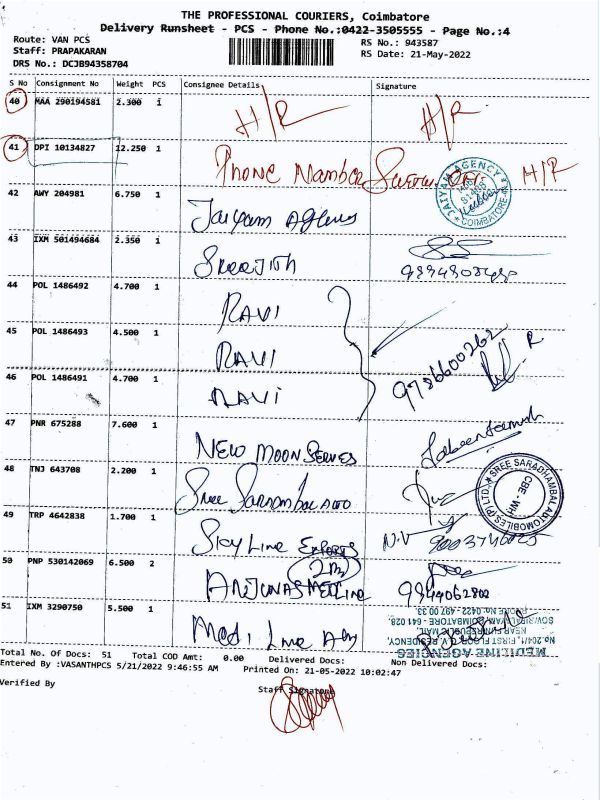 THE PROFESSIONAL COURIERS, Coimbatore
Delivery Runsheet - PCS - Phone No.:0422-3505555 - Page No.:4
Route: VAN PCS
RS No.: 943587
Staff: PRAPAKARAN
RS Date: 21-May-2022
DRS No.: DCJB94358704
S No Consignment No Weight PCS Consignee Details Signature
40 MAA 290194581 2.300 1 H/R H/R
41 DPI 10134827 12.250 1 Phone Number H/R
JAIYAM AGENCY
COIMBATORE
42 AWY 204981 6.750 1 Jaiyam Agency
43 IXM 501494684 2.350 1 Sreejith
44 POL 1486492 4.700 1 RAVI
45 POL 1486493 4.500 1 RAVI
9786600262
46 POL 1486491 4.700 1 RAVI
47 PNR 675288 7.600 1 NEW MOON
48 TNJ 643708 2.200 1 Sree
SREE SARADHAMBAL AUTOMOBILES (P) LTD.
CBE - WH
49 TRP 4642838 1.700 1 Sky Line Exports N.V
50 PNP 530142069 6.500 2 9344062802
51 IXM 3290750 5.500 1 Medi Line
MEDILINE AGENCIES
No.204/1, FIRST FLOOR, G.V. RESIDENCY,
NEAR FUN REPUBLIC MALL,
SOWRIPALAYAM, COIMBATORE - 641 028.
PHONE No.0422 - 497 00 33
Total No. Of Docs: 51 Total COD Amt: 0.00 Delivered Docs: Non Delivered Docs:
Entered By :VASANTHPCS 5/21/2022 9:46:55 AM Printed On: 21-05-2022 10:02:47
Verified By
Staff Signature